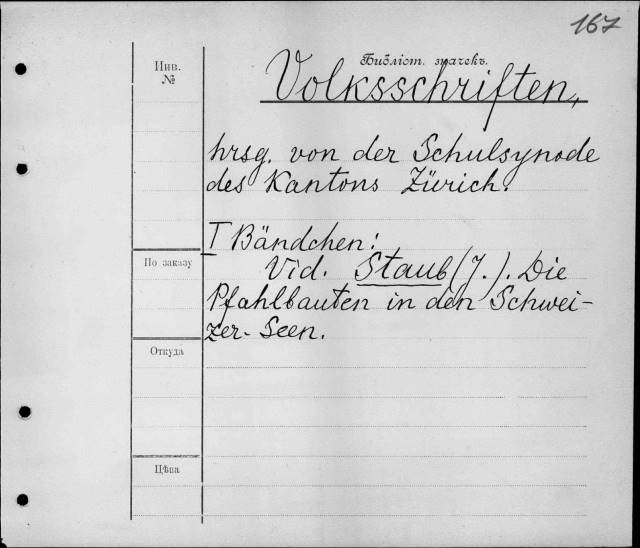 167
Библіот. значекъ.
Инв.
№
Volksschriften,
hrsg. von der Schulsynode
des Kantons Zürich.
I Bändchen:
По заказу
Vid. Staub (J.). Die
Pfahlbauten in den Schwei-
zer-Seen.
Откуда
Цѣна